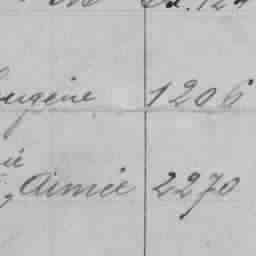 Eugène 1206
Aimée 2270